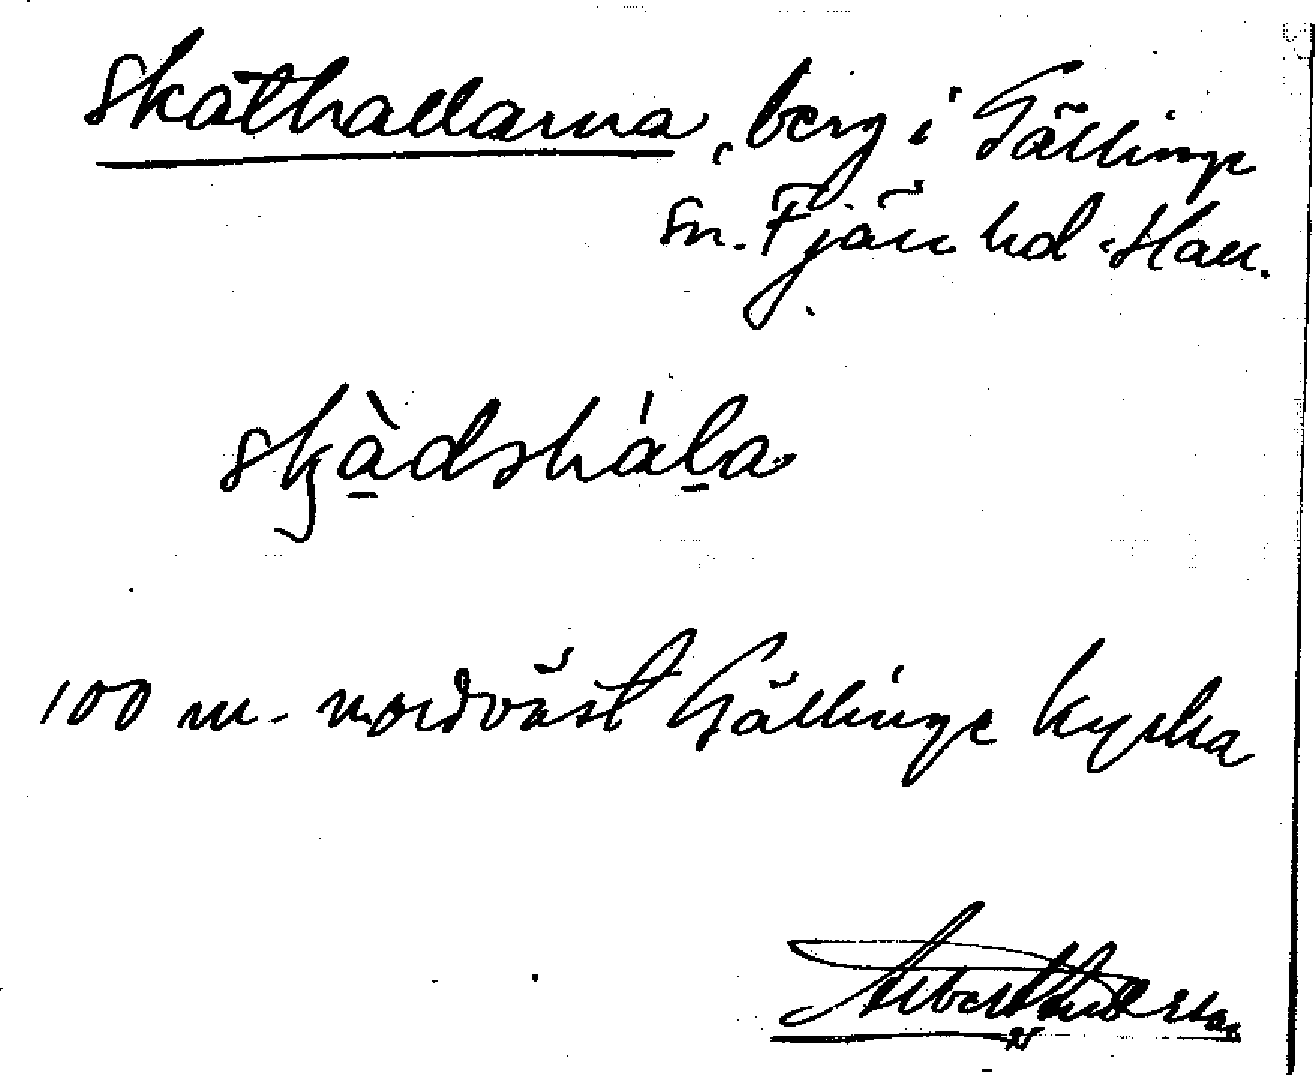 Skathallarna, berg i Gällinge
sn. Fjäre hd. Hall.
skàdshála
100 m. nordväst Gällinge kyrka
Albert Andersson